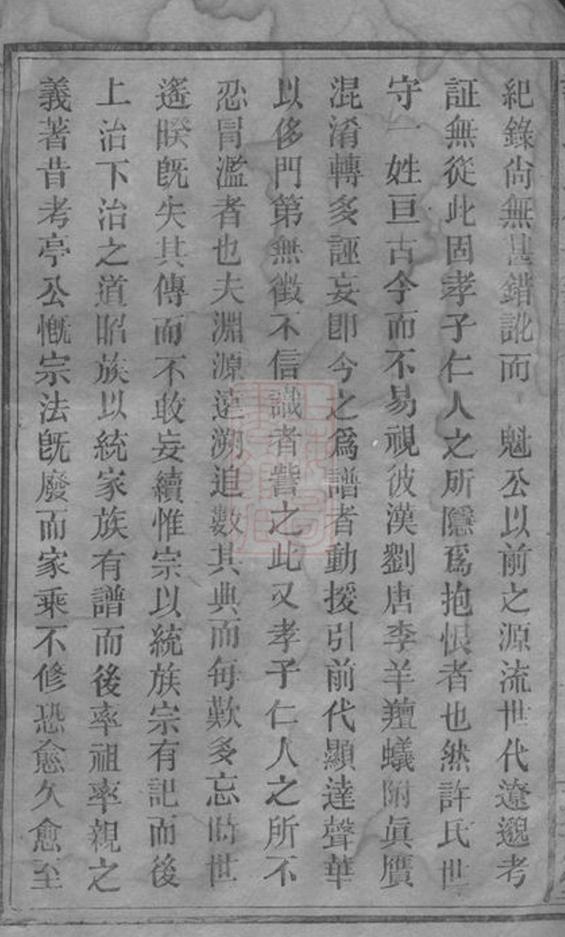 紀錄尙無甚錯訛而　魁公以前之源流世代遼邈考
証無從此固孝子仁人之所隱爲抱恨者也然許氏世
守一姓亘古今而不易視彼漢劉唐李羊羶蟻附眞贋
混淆轉多誣妄卽今之爲譜者動援引前代顯達聲華
以侈門第無徵不信識者訾之此又孝子仁人之所不
忍冐濫者也夫淵源遠溯追數其典而每歎多忘時世
遙暌旣失其傳而不敢妄續惟宗以統族宗有記而後
上治下治之道昭族以統家族有譜而後率祖率親之
義著昔考亭公慨宗法旣廢而家乘不修恐愈久愈至